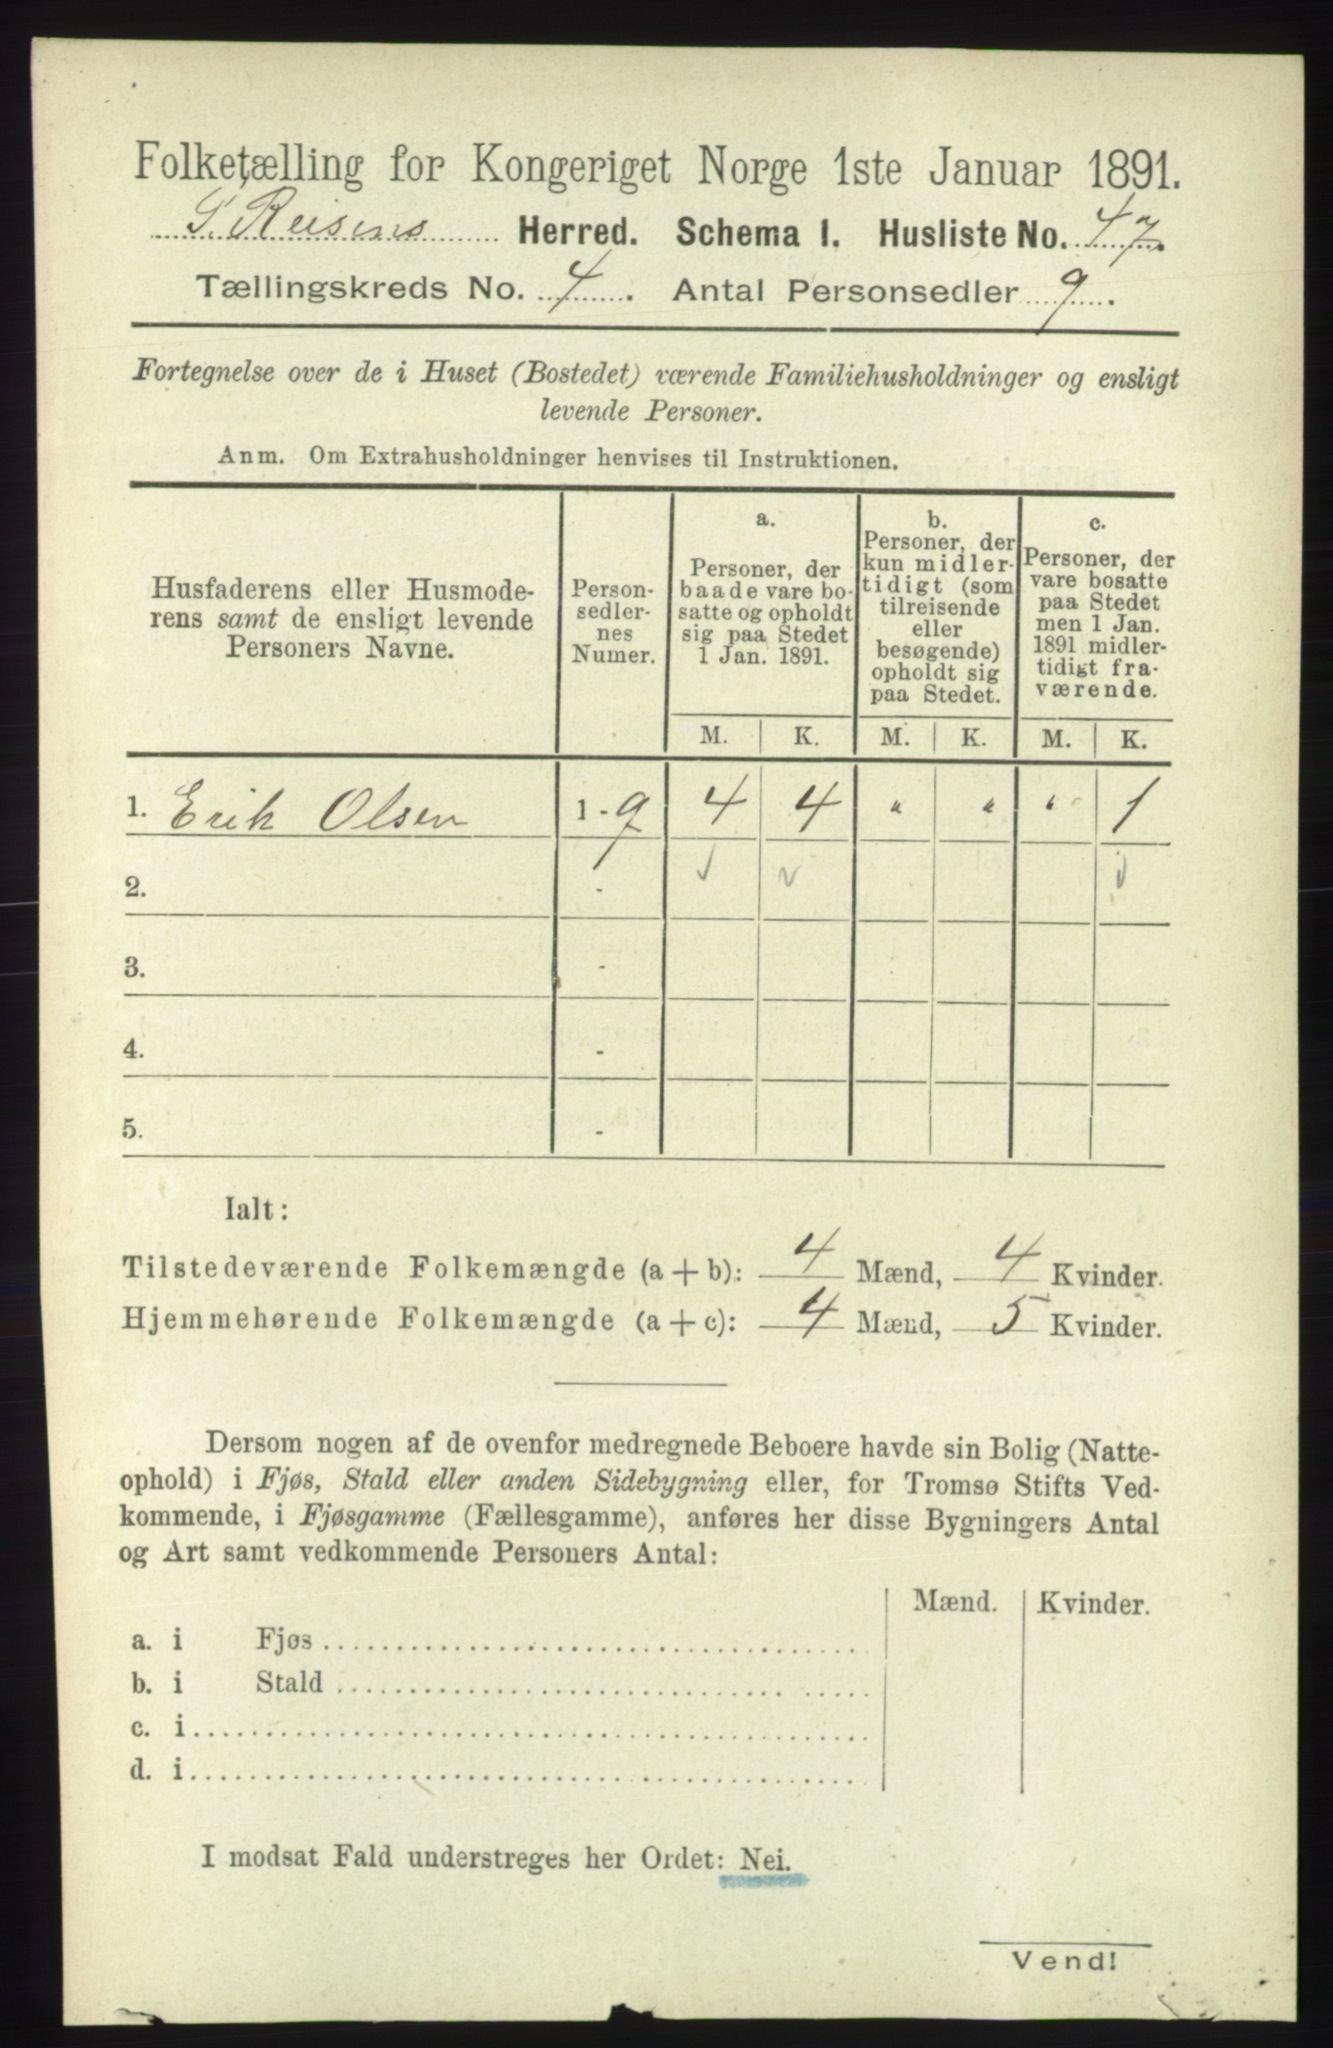 Folketælling for Kongeriget Norge 1ste Januar 1891.
S. Reisens Herred. Schema I. Husliste No. 47.
Tællingskreds No. 4. Antal Personsedler 9.
Fortegnelse over de i Huset (Bostedet) værende Familiehusholdninger og ensligt
levende Personer.
Anm. Om Extrahusholdninger henvises til Instruktionen.
Husfaderens eller Husmode-
rens samt de ensligt levende
Personers Navne.
Person-
sedler-
nes
Numer.
a.
Personer, der
baade vare bo-
satte og opholdt
sig paa Stedet
1 Jan. 1891.
b.
Personer, der
kun midler-
tidigt (som
tilreisende
eller
besøgende)
opholdt sig
paa Stedet.
c.
Personer, der
vare bosatte
paa Stedet
men 1 Jan.
1891 midler-
tidigt fra-
værende.
M. K. M. K. M. K.
1. Erik Olsen 1 - 9 4 4 " " " 1
2. -
3. -
4. -
5. -
Ialt:
Tilstedeværende Folkemængde (a + b): 4 Mænd, 4 Kvinder.
Hjemmehørende Folkemængde (a + c): 4 Mænd, 5 Kvinder.
Dersom nogen af de ovenfor medregnede Beboere havde sin Bolig (Natte-
ophold) i Fjøs, Stald eller anden Sidebygning eller, for Tromsø Stifts Ved-
kommende, i Fjøsgamme (Fællesgamme), anføres her disse Bygningers Antal
og Art samt vedkommende Personers Antal:
Mænd. Kvinder.
a. i Fjøs
b. i Stald
c. i
d. i
I modsat Fald understreges her Ordet: Nei.
Vend!